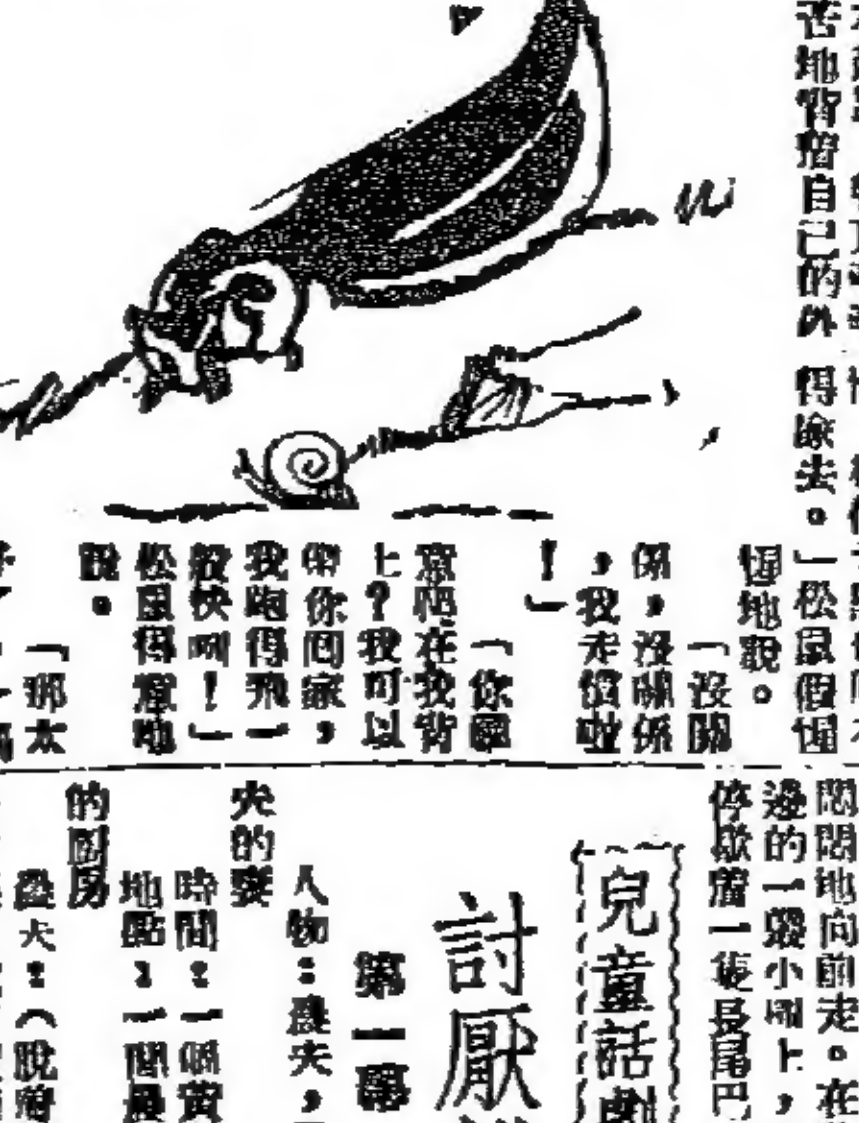 苦地背著自己的外
得鬆去。」松鼠假惺
惺地說。
「沒關
係，沒關係
，我走慣啦
！」
「你願
意爬在我背
上？我可以
帶你回家，
我跑得飛一
般快咧！」
松鼠得意地
說。
「那太
悶悶地向前走。在
邊的一
小樹上，
停歇着一隻長尾巴
兒童話劇
討厭
第一幕
人物：農夫，
夫的妻
時間：一個黃
地點：一間農
的廚房
農夫：（脫着